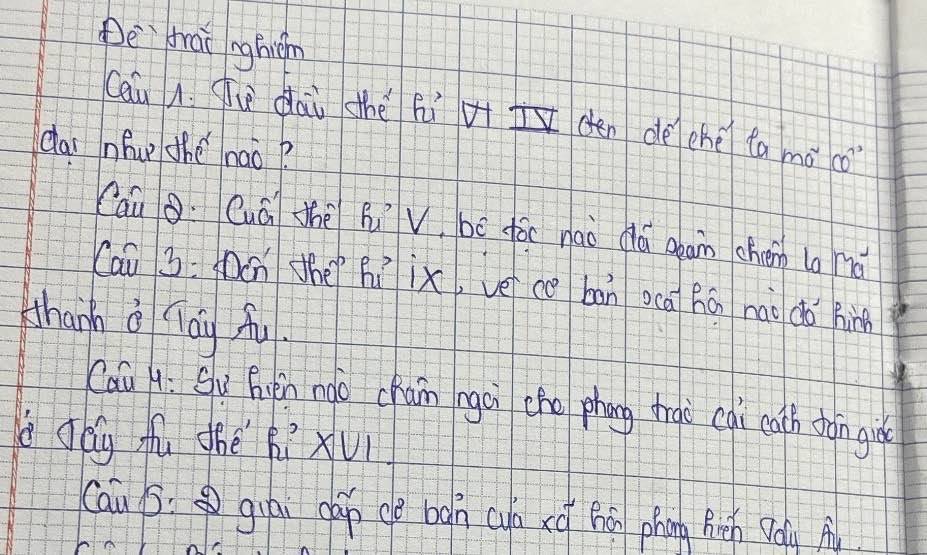 Đề trắc nghiệm
Câu 1. Từ đầu thế kỉ IV đến đế chế la mã có
đại như thế nào?
Câu 2: Cuối thế kỉ V, bộ tộc nào đã xâm chiếm la mã
Câu 3: Đến thế kỉ ix, về cơ bản xã hội nào đó hình
thành ở Tây Âu.
Câu 4: Sự kiện nào châm ngòi cho phong trào cải cách tôn giáo
ở Tây Âu thế kỉ XVI.
Câu 5: 2 giai cấp cơ bản của xã hội phong kiến Tây Âu.